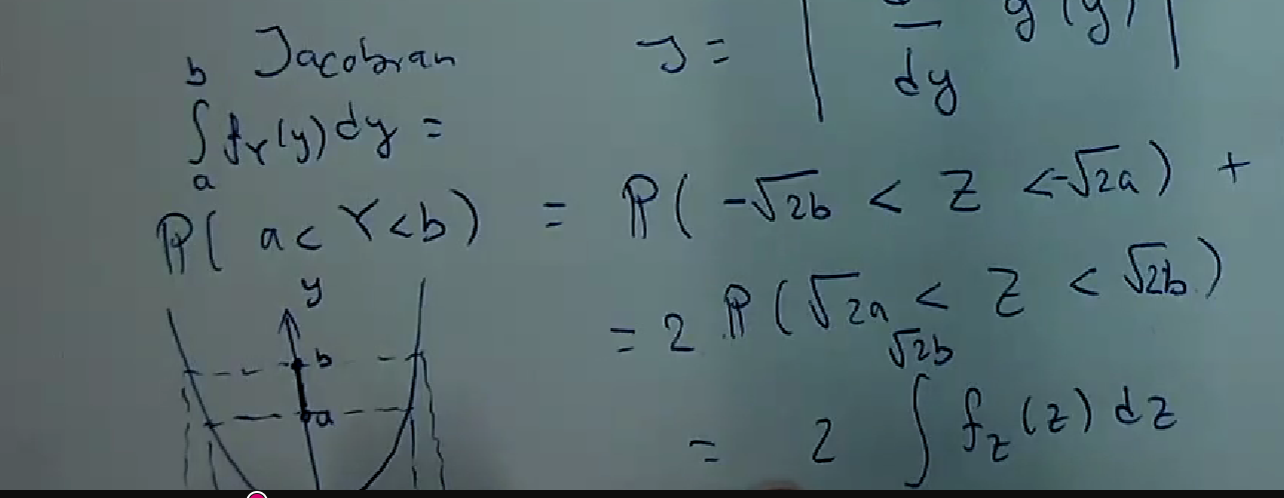 Jacobian J = | d/dy g(y) |
∫_a^b f_Y(y) dy =
ℙ( a < Y < b ) = ℙ( -√2b < Z < -√2a ) +
= 2 ℙ( √2a < Z < √2b )
= 2 ∫^√2b f_Z(z) dz
y
b
a